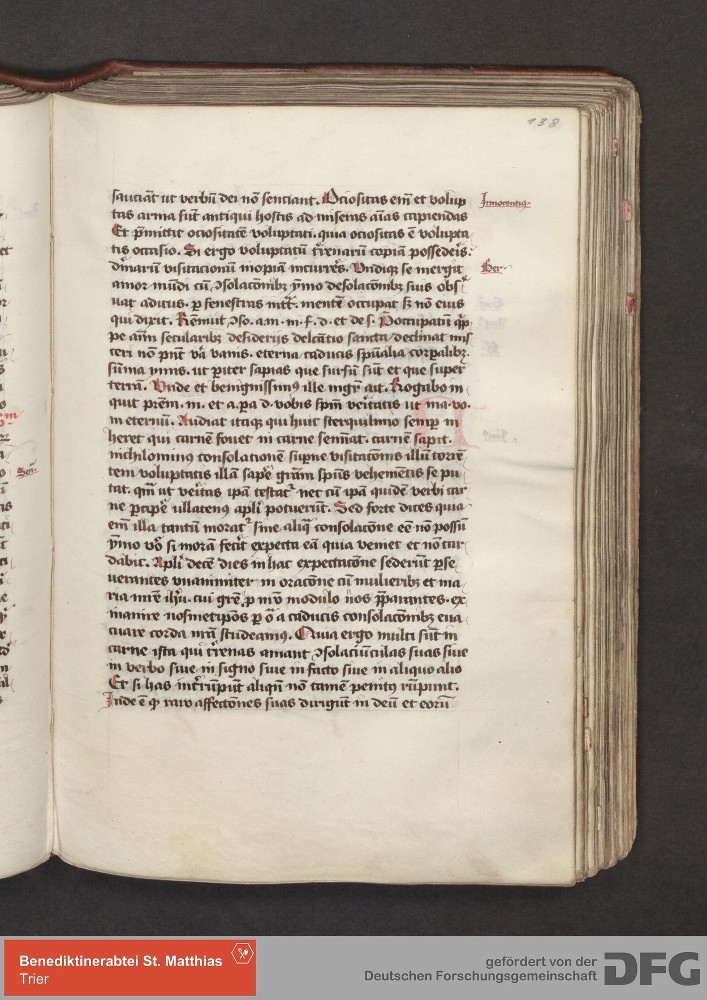 138
sauciāt ut verbū dei nō senciant. Ociositas em̄ et volup
Innocentius.
tas arma sūt antiqui hostis ad miseras aīas capiendas
Et p̄mittit ociositatē voluptati. quia ociositas ē volupta
tis occasio. Si ergo voluptatū t̄renarū copiā possederis:
dīnarū visitacionū inopiā incurres. Undiqꝫ se mergit
Ber.
amor mūdi cū ꝯsolacōnibꝫ ymo desolacōnibꝫ suis obs̓
uat aditus. ꝑ fenestras intrat. mentē occupat sꝫ nō eius
qui dixit. Rēnuit ꝯso. a. m. m. f. d. et de s. P̄occupatū q̄
pe aīm secularibꝫ desiderijs delcātio sancta declinat mis
ceri nō pn̄t v̄a vanis. eterna caducis sp̄ualia corꝑalibꝫ.
sūma ymis. ut ꝑiter sapias que sursū sūt et que super
terrā. Unde et benignissimus ille mgr̄ ait. Rogabo in
quit pr̄em. m. et a. ꝑa d. vobis sp̄m veritatis ut ma. vo.
in eternū. Audiat itaqꝫ qui huic sterquilinio semꝑ in
heret qui carnē fouet in carne semīat. carnē sapit.
nichilominus consolationē supne visitacōnis illā torrē
tem voluptatis illā sape grām spūs vehemētis se pu
tat. qm̄ ut veritas ipā testat̓ nec cū ipā quidē verbi car
ne ꝑcipe ullatenus apl̄i potuerūt. Sed forte dices quia
em̄ illa tantū morat̓ sine aliqͣ consolacōne eē nō possū
ymo v̓o si morā fecit expecta eā quia veniet et nō tar
dabit. Apl̄i decē dies in hac expectacōne sederūt ꝑse
uerantes vnanimiter in oracōne cū mulieribꝫ et ma
ria mr̄e ih̄u. cui gr̄e, ꝓ nr̄o modulo nos p̄parantes. ex
inanire nosmetip̄os ꝑ oīa a caducis consolacōnibꝫ eua
cuare corda nr̄a studeamus. Quia ergo multi sūt in
carne ista qui t̄renas amant ꝯsolaciūculas suas siue
in verbo siue in signo siue in facto siue in aliquo alio
Et si has int̄rūpūt aliqn̄ nō tamē penitus rūpunt.
Inde ē ꝙ raro affectōnes suas dirigūt in deū et eorū
Benediktinerabtei St. Matthias
Trier
gefördert von der
Deutschen Forschungsgemeinschaft
DFG